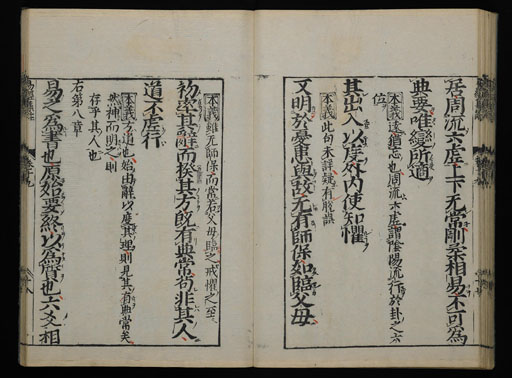 居周流六虚上下无常剛柔相易不可為
典要唯變所適
本義遠猶忘也周流六虚謂陰陽流行於卦之六
位
其出入以度外内使知懼
本義此句未詳疑有脫誤
又明於憂患與故无有師保如臨父母
本義雖无師保而常若父母臨之戒懼之至
初率其辭而揆其方既有典常苟非其人
道不虚行
本義方道也始由辭以度其理則見其有典常矣
然神而明之則
存乎其人也
右第八章
易之為書也原始要終以為質也六爻相